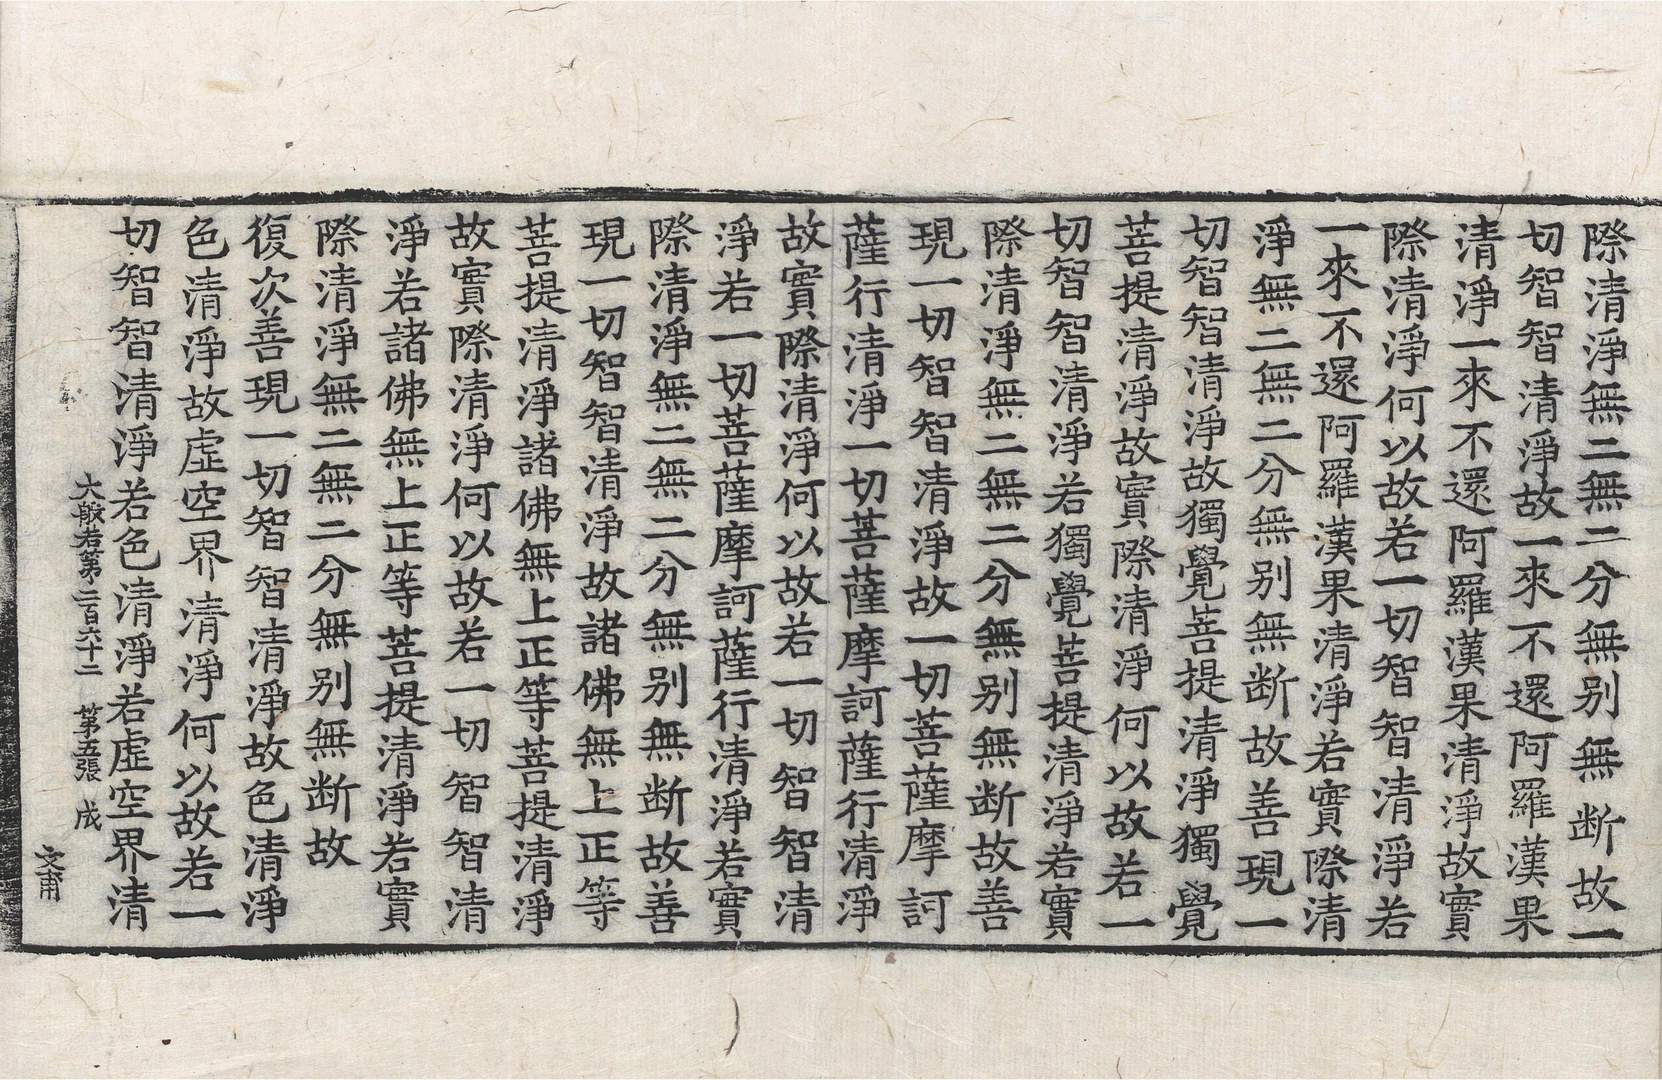 際清淨無二無二分無別無断故一
切智智清淨故一來不還阿羅漢果
清淨一來不還阿羅漢果清淨故實
際清淨何以故若一切智智清淨若
一來不還阿羅漢果清淨若實際清
淨無二無二分無別無断故善現一
切智智清淨故獨覺菩提清淨獨覺
菩提清淨故實際清淨何以故若一
切智智清淨若獨覺菩提清淨若實
際清淨無二無二分無別無断故善
現一切智智清淨故一切菩薩摩訶
薩行清淨一切菩薩摩訶薩行清淨
故實際清淨何以故若一切智智清
淨若一切菩薩摩訶薩行清淨若實
際清淨無二無二分無別無断故善
現一切智智清淨故諸佛無上正等
菩提清淨諸佛無上正等菩提清淨
故實際清淨何以故若一切智智清
淨若諸佛無上正等菩提清淨若實
際清淨無二無二分無別無断故
復次善現一切智智清淨故色清淨
色清淨故虛空界清淨何以故若一
切智智清淨若色清淨若虛空界清
大般若第二百六十二 第五張 成
文甫